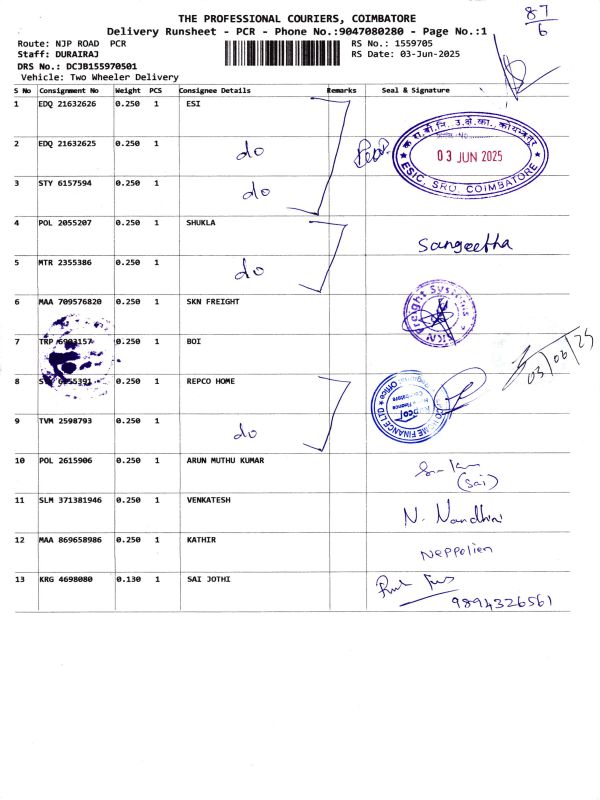 THE PROFESSIONAL COURIERS, COIMBATORE
87
6
Delivery Runsheet - PCR - Phone No.:9047080280 - Page No.:1
Route: NJP ROAD PCR
RS No.: 1559705
Staff: DURAIRAJ
RS Date: 03-Jun-2025
DRS No.: DCJB155970501
Vehicle: Two Wheeler Delivery
S No Consignment No Weight PCS Consignee Details Remarks Seal & Signature
1 EDQ 21632626 0.250 1 ESI
2 EDQ 21632625 0.250 1 do
03 JUN 2025
ESIC, SRO, COIMBATORE
3 STY 6157594 0.250 1 do
4 POL 2055207 0.250 1 SHUKLA
Sangeetha
5 MTR 2355386 0.250 1 do
6 MAA 709576820 0.250 1 SKN FREIGHT
Freight Systems
7 TRP 6903157 0.250 1 BOI
03/06/25
8 0.250 1 REPCO HOME
HOME FINANCE LTD
9 TVM 2598793 0.250 1 do
10 POL 2615906 0.250 1 ARUN MUTHU KUMAR
(Sai)
11 SLM 371381946 0.250 1 VENKATESH
N. Nandhini
12 MAA 869658986 0.250 1 KATHIR
Neppolien
13 KRG 4698080 0.130 1 SAI JOTHI
9894326561